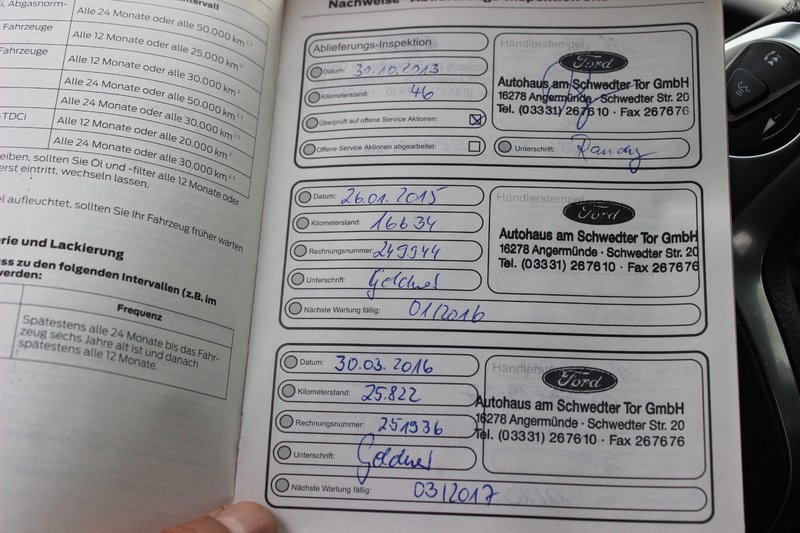 Abgasnorm-
Intervall
Alle 24 Monate oder alle 50.000 km 2,3
Fahrzeuge
Alle 12 Monate oder alle 25.000 km 2
Fahrzeuge
Alle 12 Monate oder alle 30.000 km 2
Alle 24 Monate oder alle 50.000 km 2,3
Alle 24 Monate oder alle 30.000 km 2,3
-TDCi
Alle 12 Monate oder alle 20.000 km 2
Alle 24 Monate oder alle 30.000 km 2,3
eiben, sollten Sie Öl und -filter alle 12 Monate oder
erst eintritt, wechseln lassen.
el aufleuchtet, sollten Sie Ihr Fahrzeug früher warten
erie und Lackierung
ss zu den folgenden Intervallen (z.B. im
werden:
Frequenz
Spätestens alle 24 Monate bis das Fahr-
zeug sechs Jahre alt ist und danach
spätestens alle 12 Monate.
Ablieferungs-Inspektion
Datum: 30.10.2013
Kilometerstand: 46
Überprüft auf offene Service Aktionen:
Offene Service Aktionen abgearbeitet:
Händlerstempel
Ford
Autohaus am Schwedter Tor GmbH
16278 Angermünde · Schwedter Str. 20
Tel. (03331) 267610 · Fax 267676
Unterschrift:
Datum: 26.01.2015
Kilometerstand: 16634
Rechnungsnummer: 249944
Unterschrift:
Nächste Wartung fällig: 01/2016
Händlerstempel
Ford
Autohaus am Schwedter Tor GmbH
16278 Angermünde · Schwedter Str. 20
Tel. (03331) 267610 · Fax 267676
Datum: 30.03.2016
Kilometerstand: 25.822
Rechnungsnummer: 251936
Unterschrift:
Nächste Wartung fällig: 03/2017
Ford
Autohaus am Schwedter Tor GmbH
16278 Angermünde · Schwedter Str. 20
Tel. (03331) 267610 · Fax 267676